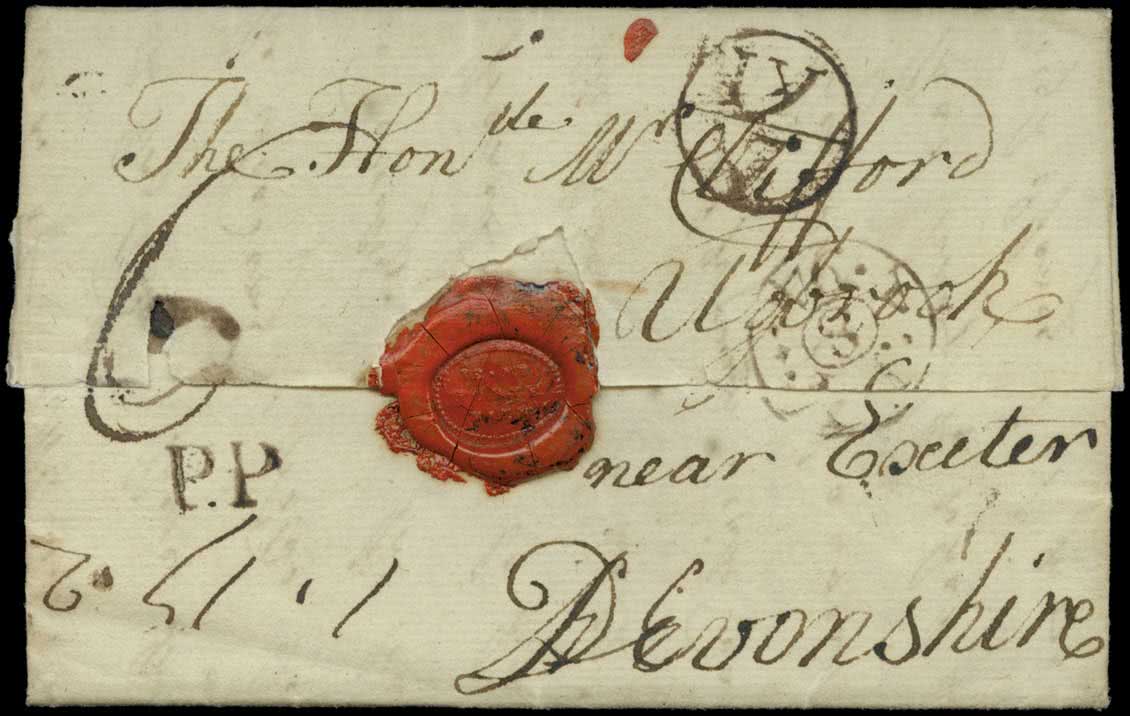 The Hon.ble Mr Clifford
Ugbrook
near Exeter
Devonshire
P.P
IY
S
6